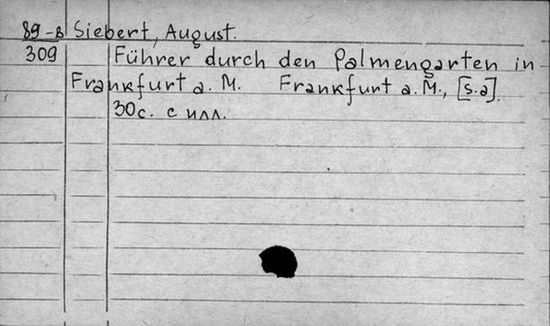 89-8 Siebert, August.
309 Führer durch den Palmengarten in
Frankfurt a. M. Frankfurt a. M., [s.a].
30 с. с илл.